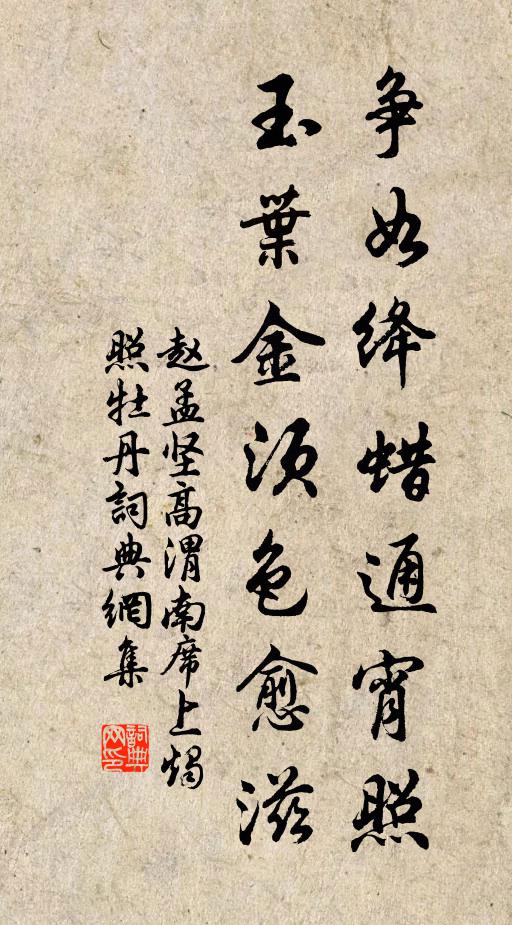 争如绛蜡通宵照
玉葉金须色愈滋
赵孟坚高渭南席上烛
照牡丹詞典網集
詞典网印